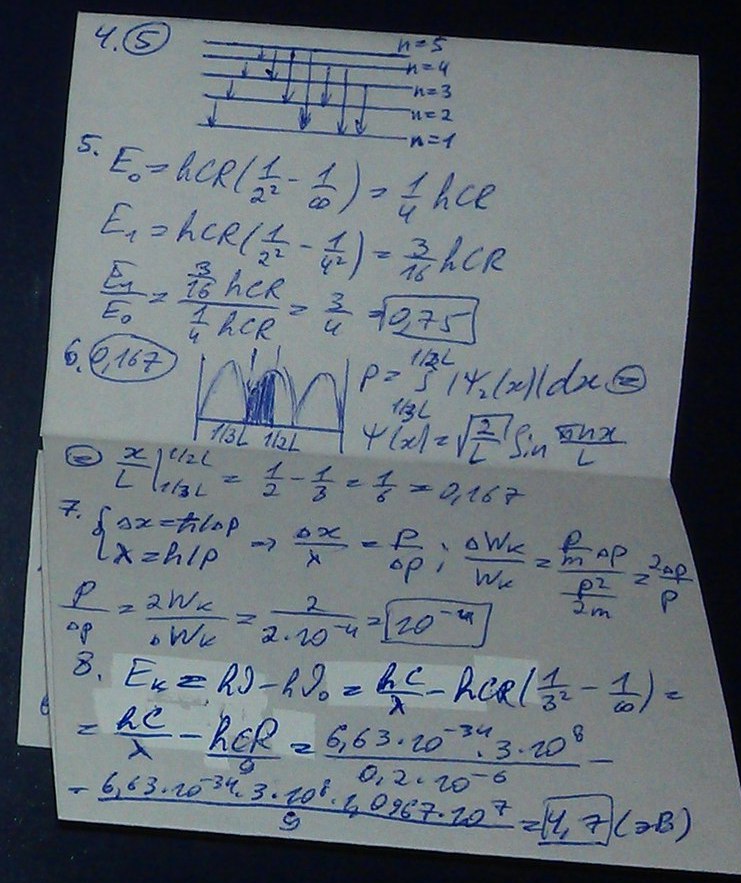 4. 5
n=5
n=4
n=3
n=2
n=1
5. E₀ = hCR(1/2² - 1/∞) = 1/4 hCR
E₁ = hCR(1/2² - 1/4²) = 3/16 hCR
E₁/E₀ = (3/16 hCR)/(1/4 hCR) = 3/4 = 0,75
6. 0,167
1/3L 1/2L
P = ∫_{1/3L}^{1/2L} |Ψ₂(x)| dx =
Ψ(x) = √(2/L) Sin πnx/L
= x/L |_{1/3L}^{1/2L} = 1/2 - 1/3 = 1/6 = 0,167
7. { Δx = ħ/Δp
λ = h/p ⇒ Δx/λ = p/Δp ; ΔWk/Wk = (p/m Δp)/(p²/2m) = 2Δp/p
p/Δp = 2Wk/ΔWk = 2/(2·10⁻⁴) = 10⁻⁴
8. Eк = hν - hν₀ = hC/λ - hCR(1/3² - 1/∞) =
= hC/λ - hCR/9 = (6,63·10⁻³⁴·3·10⁸)/(0,2·10⁻⁶) -
- (6,63·10⁻³⁴·3·10⁸·1,0967·10⁷)/9 = 4,7 (эВ)